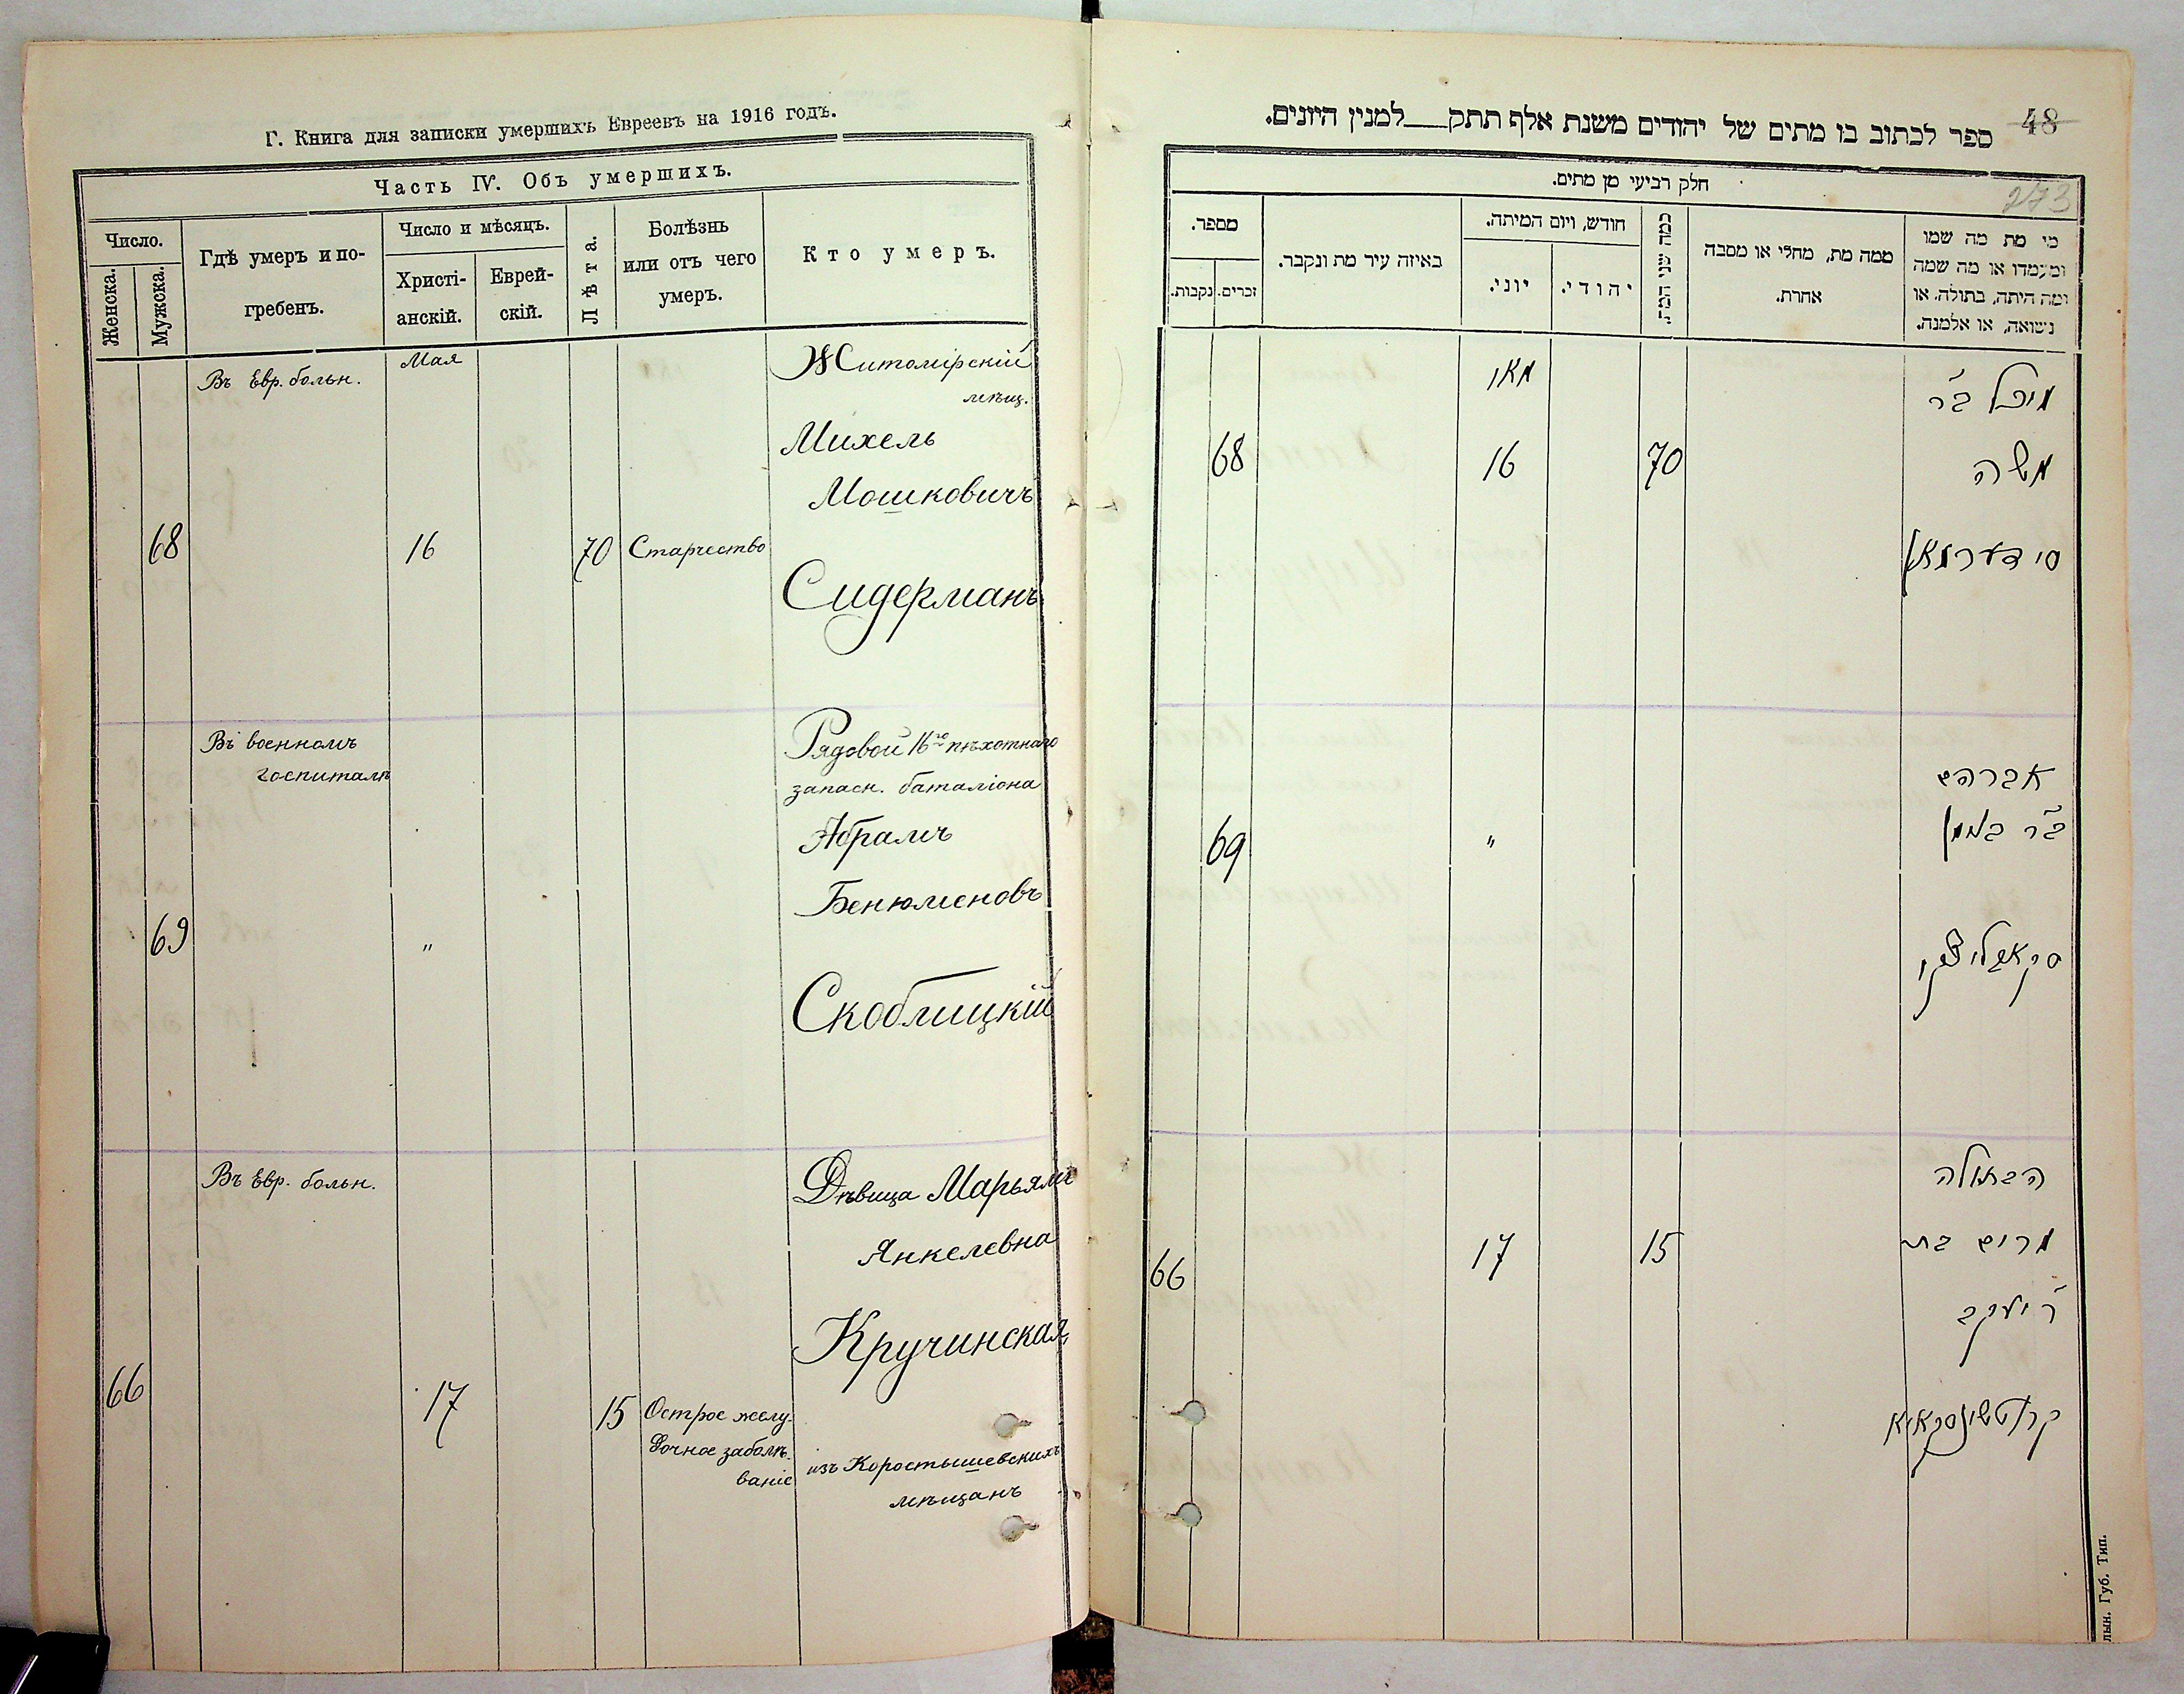 Г. Книга для записки умершихъ Евреевъ на 1916 годъ.
Часть IV. Объ умершихъ.
Число.
Женска.
Мужска.
Гдѣ умеръ и по-
гребенъ.
Число и мѣсяцъ.
Христі-
анскій.
Еврей-
скій.
Лѣта.
Болѣзнь
или отъ чего
умеръ.
Кто умеръ.
Въ Евр. больн.
Мая
Житомірскій
мѣщ.
Михель
Мошковичъ
68
16
70
Старчество
Сидерманъ
Въ военномъ
госпиталѣ
Рядовой 16го пѣхотнаго
запасн. баталіона
Абрамъ
Бенюменовъ
69
"
Скоблицкій
Въ Евр. больн.
Дѣвица Марьямъ
Янкелевна
Кручинская,
66
17
15
Острое желу-
дочное заболѣ-
ваніе
изъ Коростышевскихъ
мѣщанъ
48
273
ספר לכתוב בו מתים של יהודים משנת אלף תתק__למנין היונים.
חלק רביעי מן מתים.
מספר.
נקבות.
זכרים.
באיזה עיר מת ונקבר.
חודש, ויום המיתה.
יוני.
יהודי.
כמה שני המת.
ממה מת, מחלי או מסבה
אחרת.
מי מת מה שמו
ומעמדו או מה שמה
ומה היתה, בתולה, או
נשואה, או אלמנה.
מאי
מיכל ב״ר
68
16
70
משה
סידערמאן
אברהם
69
"
ב״ר בנימן
סקאבליצקי
הבתולה
66
17
15
מרים בת
ר׳ יעקב
קרוטשינסקאיא
лын. Губ. Тип.